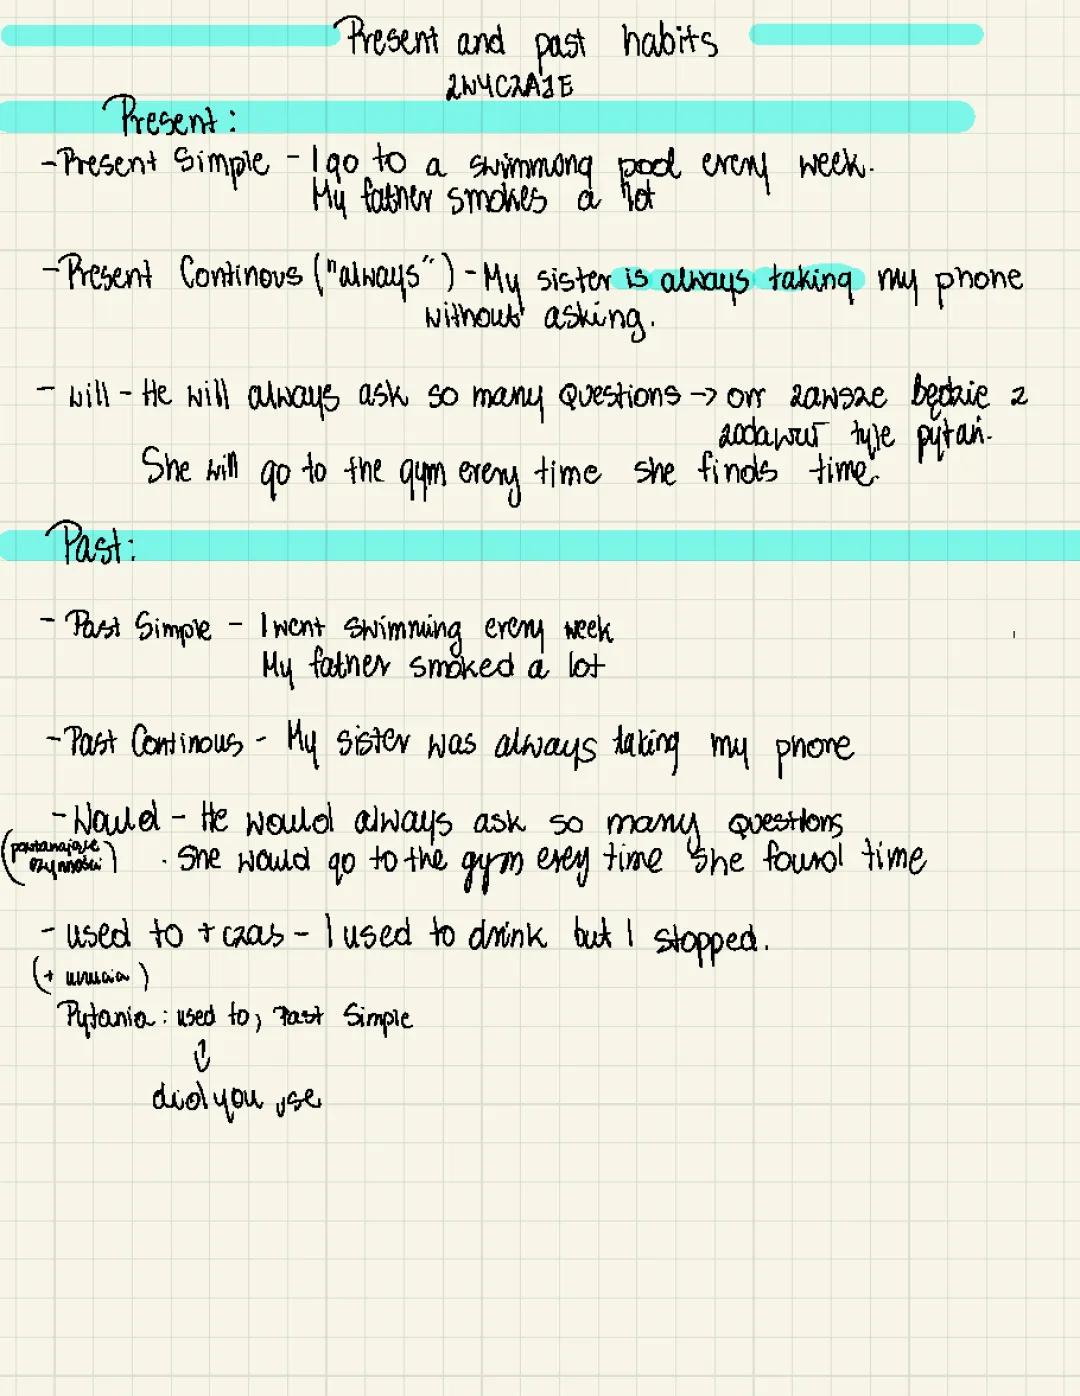 Present and past habits
ZWYCZAJE
Present:
- Present Simple - I go to a swimmong pool every week.
My father smokes a lot
- Present Continous ("always") - My sister is always taking my phone
without asking.
- will - He will always ask so many questions → on zawsze będzie z
zadawał tyle pytań.
She will go to the gym every time she finds time.
Past:
- Past Simple - I went swimming every week
My father smoked a lot
- Past Continous - My sister was always taking my phone
- Would - He would always ask so many questions
(powtarzające
czynności) · She would go to the gym evey time she found time
- used to + czas - I used to drink but I stopped.
(+ )
Pytania: used to, Past Simple
↓
did you use